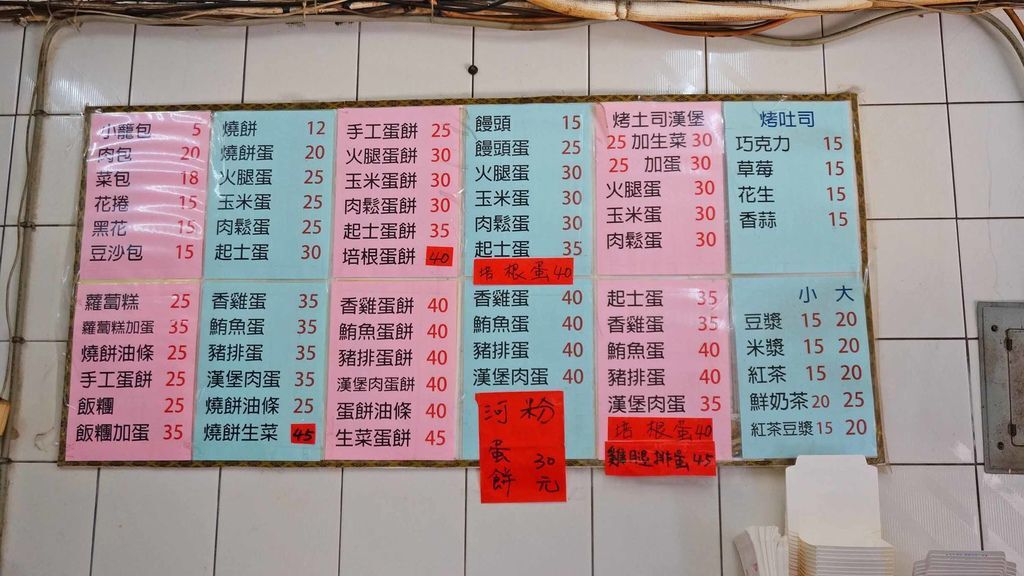 小籠包 5
肉包 20
菜包 18
花捲 15
黑花 15
豆沙包 15
燒餅 12
燒餅蛋 20
火腿蛋 25
玉米蛋 25
肉鬆蛋 25
起士蛋 30
手工蛋餅 25
火腿蛋餅 30
玉米蛋餅 30
肉鬆蛋餅 30
起士蛋餅 35
培根蛋餅 40
饅頭 15
饅頭蛋 25
火腿蛋 30
玉米蛋 30
肉鬆蛋 30
起士蛋 35
培根蛋 40
烤土司漢堡
25 加生菜 30
25 加蛋 30
火腿蛋 30
玉米蛋 30
肉鬆蛋 30
烤吐司
巧克力 15
草莓 15
花生 15
香蒜 15
蘿蔔糕 25
蘿蔔糕加蛋 35
燒餅油條 25
手工蛋餅 25
飯糰 25
飯糰加蛋 35
香雞蛋 35
鮪魚蛋 35
豬排蛋 35
漢堡肉蛋 35
燒餅油條 25
燒餅生菜 45
香雞蛋餅 40
鮪魚蛋餅 40
豬排蛋餅 40
漢堡肉蛋餅 40
蛋餅油條 40
生菜蛋餅 45
香雞蛋 40
鮪魚蛋 40
豬排蛋 40
漢堡肉蛋 40
河粉
蛋餅
30元
起士蛋 35
香雞蛋 35
鮪魚蛋 40
豬排蛋 40
漢堡肉蛋 35
培根蛋 40
雞腿排蛋 45
小 大
豆漿 15 20
米漿 15 20
紅茶 15 20
鮮奶茶 20 25
紅茶豆漿 15 20